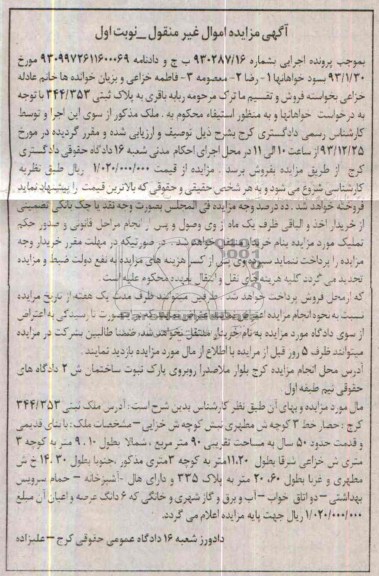 آگهی مزایده اموال غیر منقول _نوبت اول
بموجب پرونده اجرایی بشماره ۹۳۰۲۸۷/۱۶ ب ج و دادنامه ۹۳۰۹۹۷۲۶۱۱۶۰۰۰۶۹ مورخ
۹۳/۱/۳۰ بسود خواهانها ۱- رضا ۲- معصومه ۳- فاطمه خزاعی و بزیان خوانده ها خانم عادله
خزاعی بخواسته فروش و تقسیم ما ترک مرحومه ربابه باقری به پلاک ثبتی ۳۴۴/۳۵۳ با توجه
به درخواست خواهانها و به منظور استیفاء محکوم به . ملک مذکور از سوی این اجرا و توسط
کارشناس رسمی دادگستری کرج بشرح ذیل توصیف و ارزیابی شده و مقرر گردیده در مورخ
۹۳/۱۲/۲۵ از ساعت ۱۰ الی ۱۱ در محل اجرای احکام مدنی شعبه ۱۶ دادگاه حقوقی دادگستری
کرج از طریق مزایده بفروش برسد . مزایده از قیمت ۱/۰۲۰/۰۰۰/۰۰۰ ریال طبق نظریه
کارشناسی شروع می شود و به هر شخص حقیقی و حقوقی که بالاترین قیمت را پیشنهاد نماید
فروخته خواهد شد . ده درصد وجه مزایده فی المجلس بصورت وجه نقد یا چک بانکی تضمینی
از خریدار اخذ و الباقی ظرف یک ماه از وی وصول و پس از انجام مراحل قانونی و صدور حکم
تملیک مورد مزایده بنام خریدار منتقل خواهد شد . در صورتیکه در مهلت مقرر خریدار وجه
مزایده را پرداخت ننماید سپرده وی پس از کسر هزینه های مزایده به نفع دولت ضبط و مزایده
تجدید می گردد کلیه هزینه های نقل و انتقال بعهده محکوم علیه است
که از محل فروش پرداخت خواهد شد . طرفین میتوانند ظرف مدت یک هفته از تاریخ مزایده
نسبت به نحوه انجام مزایده اعتراض صورت رسیدگی به اعتراض
از سوی دادگاه مورد مزایده به نام خریدار منتقل نخواهد شد. ضمنا طالبین بشرکت در مزایده
میتوانند ظرف ۵ روز قبل از مزایده با اطلاع از مال مورد مزایده بازدید نمایند .
آدرس محل انجام مزایده کرج بلوار ملاصدرا روبروی پارک نبوت ساختمان ش ۲ دادگاه های
حقوقی نیم طبقه اول
مال مورد مزایده و بهای آن طبق نظر کارشناس بدین شرح است : آدرس ملک ثبتی ۳۴۴/۳۵۳
کرج : حصار خط ۳ کوچه ش مطهری نبش کوچه ش خزایی - مشخصات ملک : با بنای قدیمی
و قدمت حدود ۵۰ سال به مساحت تقریبی ۹۰ متر مربع ، شمالا بطول ۹.۱۰ متر به کوچه ۳
متری ش خزاعی شرقا بطول ۱۱.۲۰ متر به کوچه ۳ متری مذکور ،جنوبا بطول ۱۴.۳۰ خ ش
مطهری و غربا بطول ۲۰.۶۰ متر به پلاک ۳۳۵ و دارای هال -آشپزخانه - حمام سرویس
بهداشتی - دو اتاق خواب - آب و برق و گاز شهری و خانگی که ۶ دانگ عرصه و اعیان آن مبلغ
۱/۰۲۰/۰۰۰/۰۰۰ ریال جهت پایه مزایده اعلام می گردد.
دادورز شعبه ۱۶ دادگاه عمومی حقوقی کرج - علیزاده